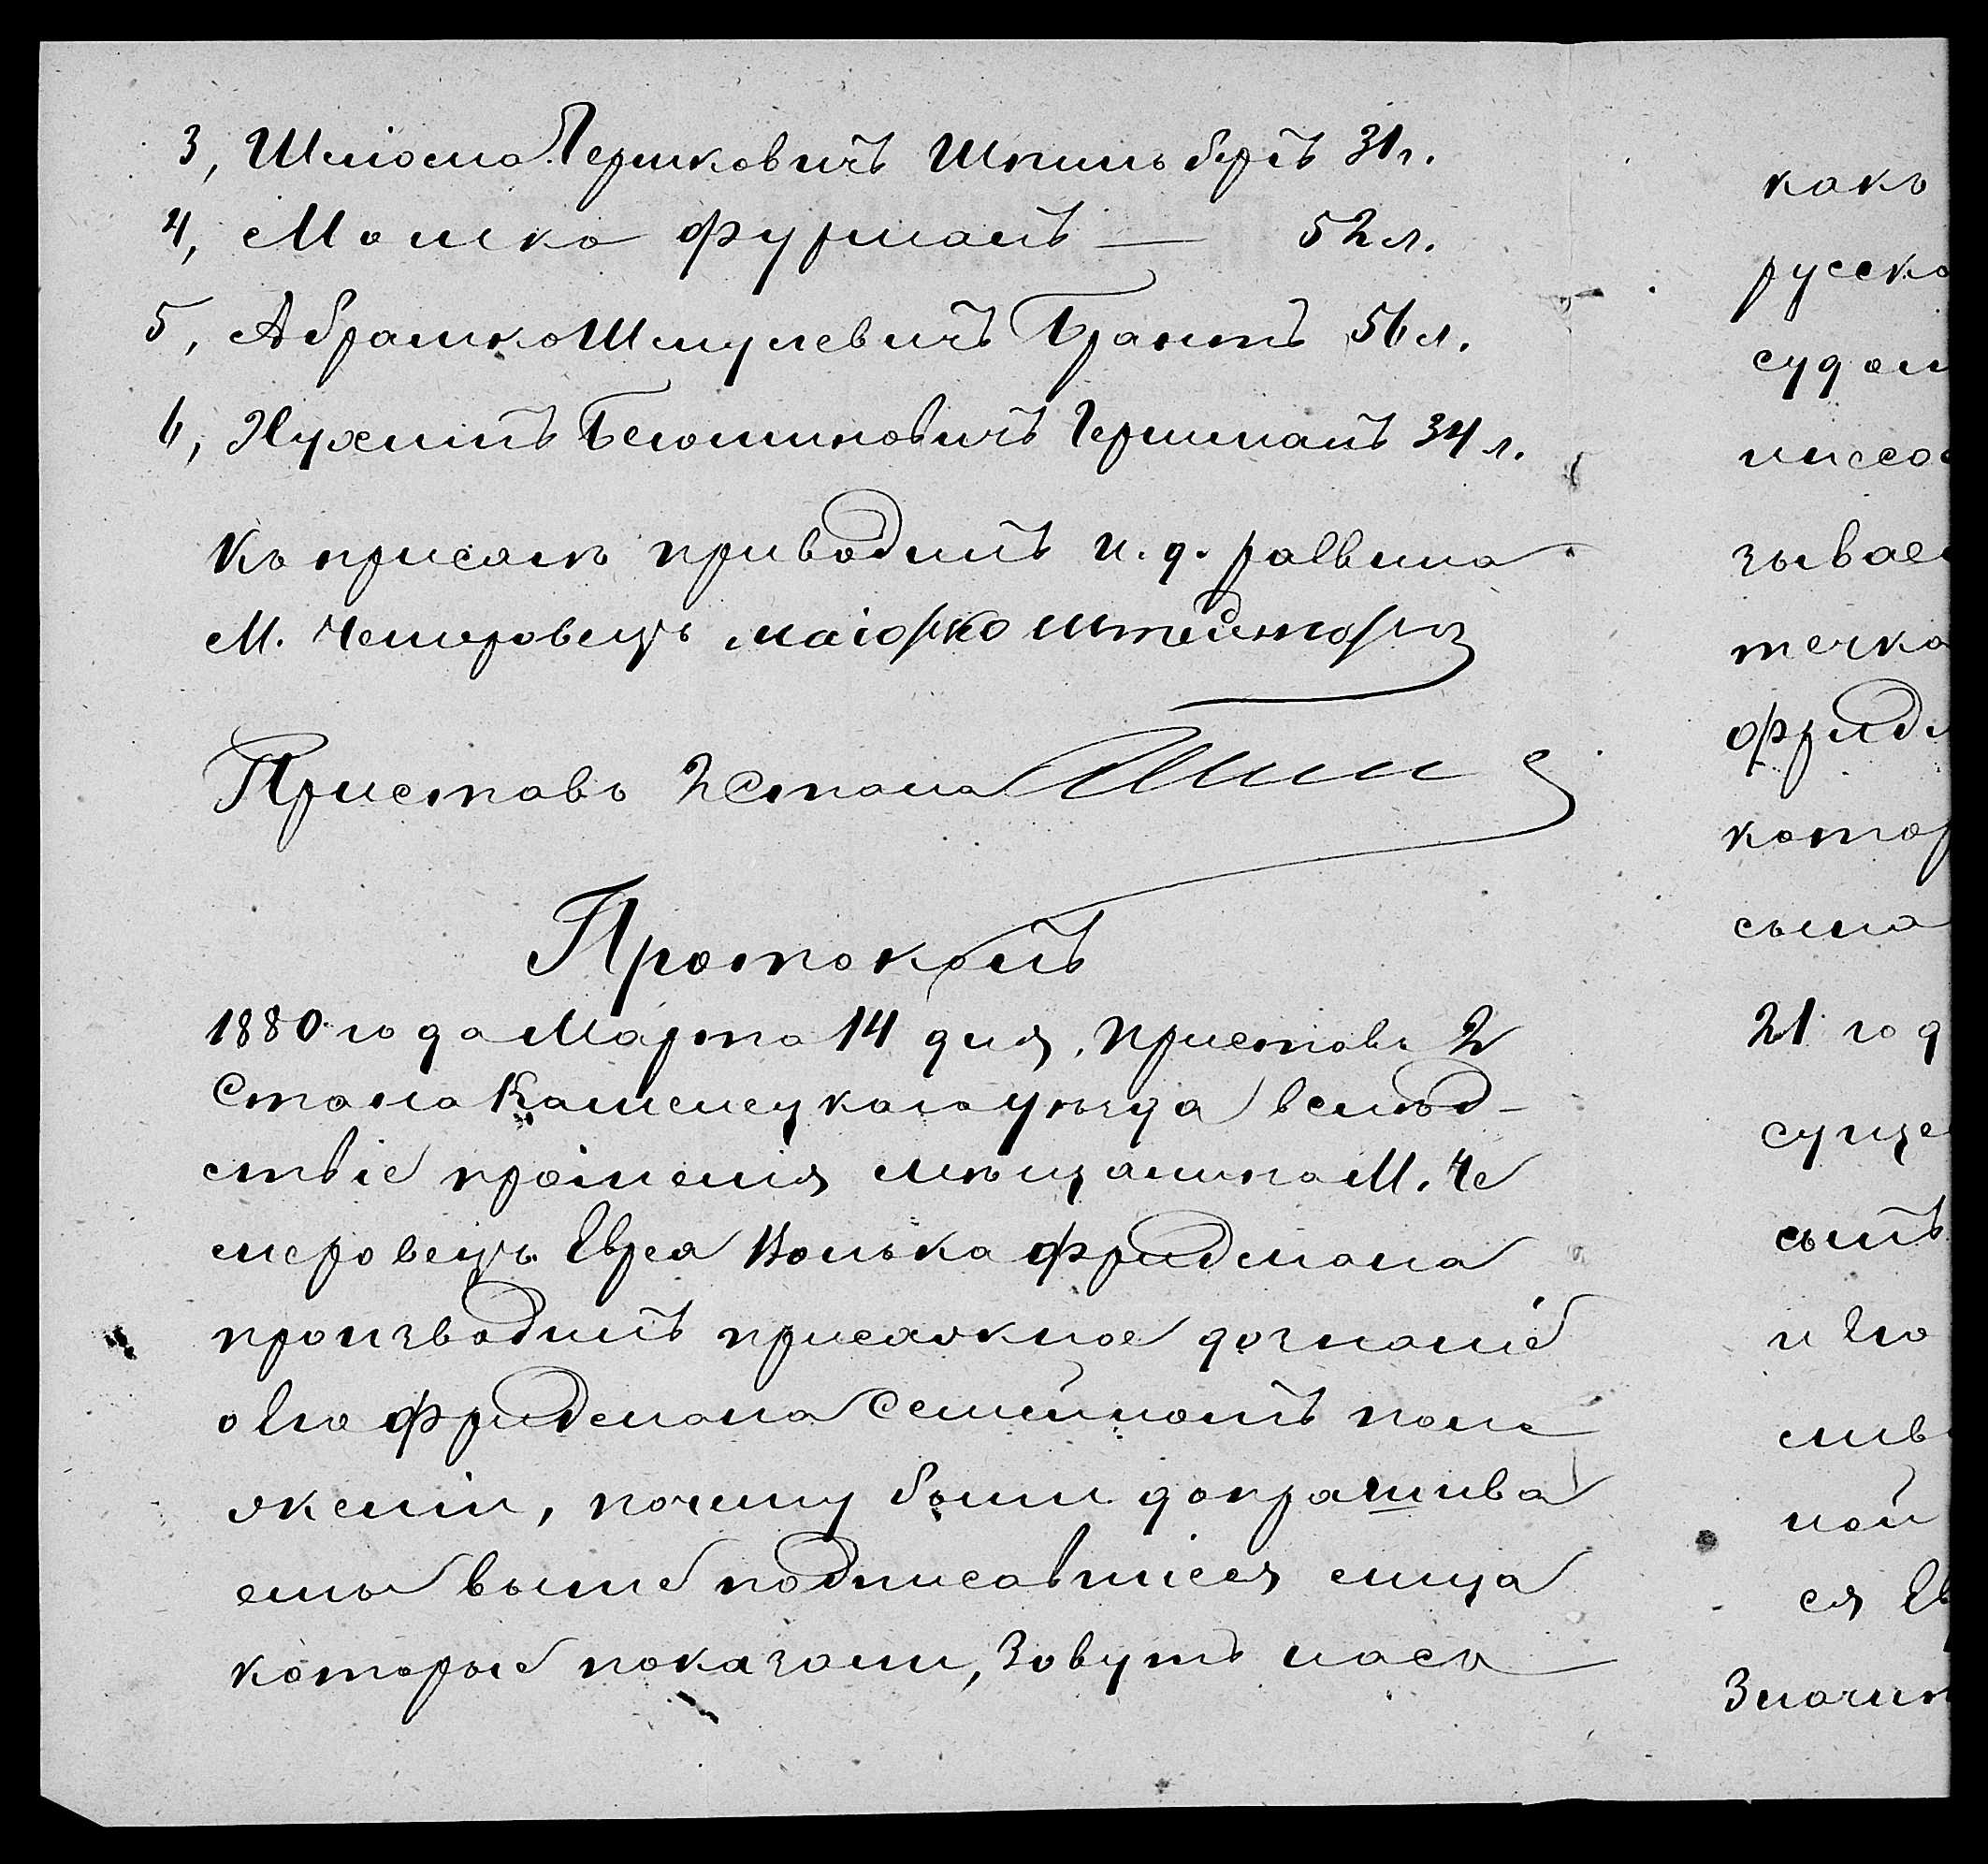 3, Шліома Гершковичъ Шпильбергъ 31 г.
4, Мошко Фурманъ — 52 л.
5, Абрамко Шмулевичъ Брантъ 56 л.
6, Нухимъ Беюминовичъ Гершманъ 34 л.
Къ присягѣ приводилъ и. д. раввина
М. Чемеровецъ Маіорко Штейнгорнъ
Приставъ 2 Стана
Протоколъ
1880 года Марта 14 дня, Приставъ 2
Стана Каменецкаго уѣзда вслѣд-
ствіе прошенія мѣщанина М. Че
меровецъ Еврея Волька Фридмана
производилъ присяжное дознаніе
о его Фридмана Семейномъ поло
женіи, почему были допрашива
емы выше подписавшіеся лица
которые показали, Зовутъ насъ
какъ
русско
судом
миссо
зывае
течко
Фридм
котор
сына
21 год
суще
сынъ
и его
ной
ся Ев
Значит